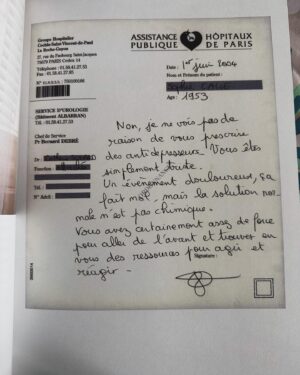 Groupe Hospitalier
Cochin-Saint-Vincent-de-Paul
La Roche-Guyon
27, rue du Faubourg Saint-Jacques
75679 PARIS Cedex 14
Téléphone : 01.58.41.27.53
Fax : 01.58.41.27.55
ASSISTANCE HÔPITAUX
PUBLIQUE DE PARIS
Date : 1er juin 2004
Nom et Prénom du patient :
Age : 1953
SERVICE D'UROLOGIE
(Bâtiment ALBARRAN)
Chef de Service
Pr Bernard DEBRÉ
Dr :
Fonction :
N° Adeli :
Non, je ne vois pas de
raison de vous prescrire
des antidépresseurs. Vous êtes
simplement triste.
Un événement douloureux, ça
fait mal, mais la solution nor
male n'est pas chimique.
Vous avez certainement assez de force
pour aller de l'avant et trouver en
vous des ressources pour agir et
réagir.
Signature :